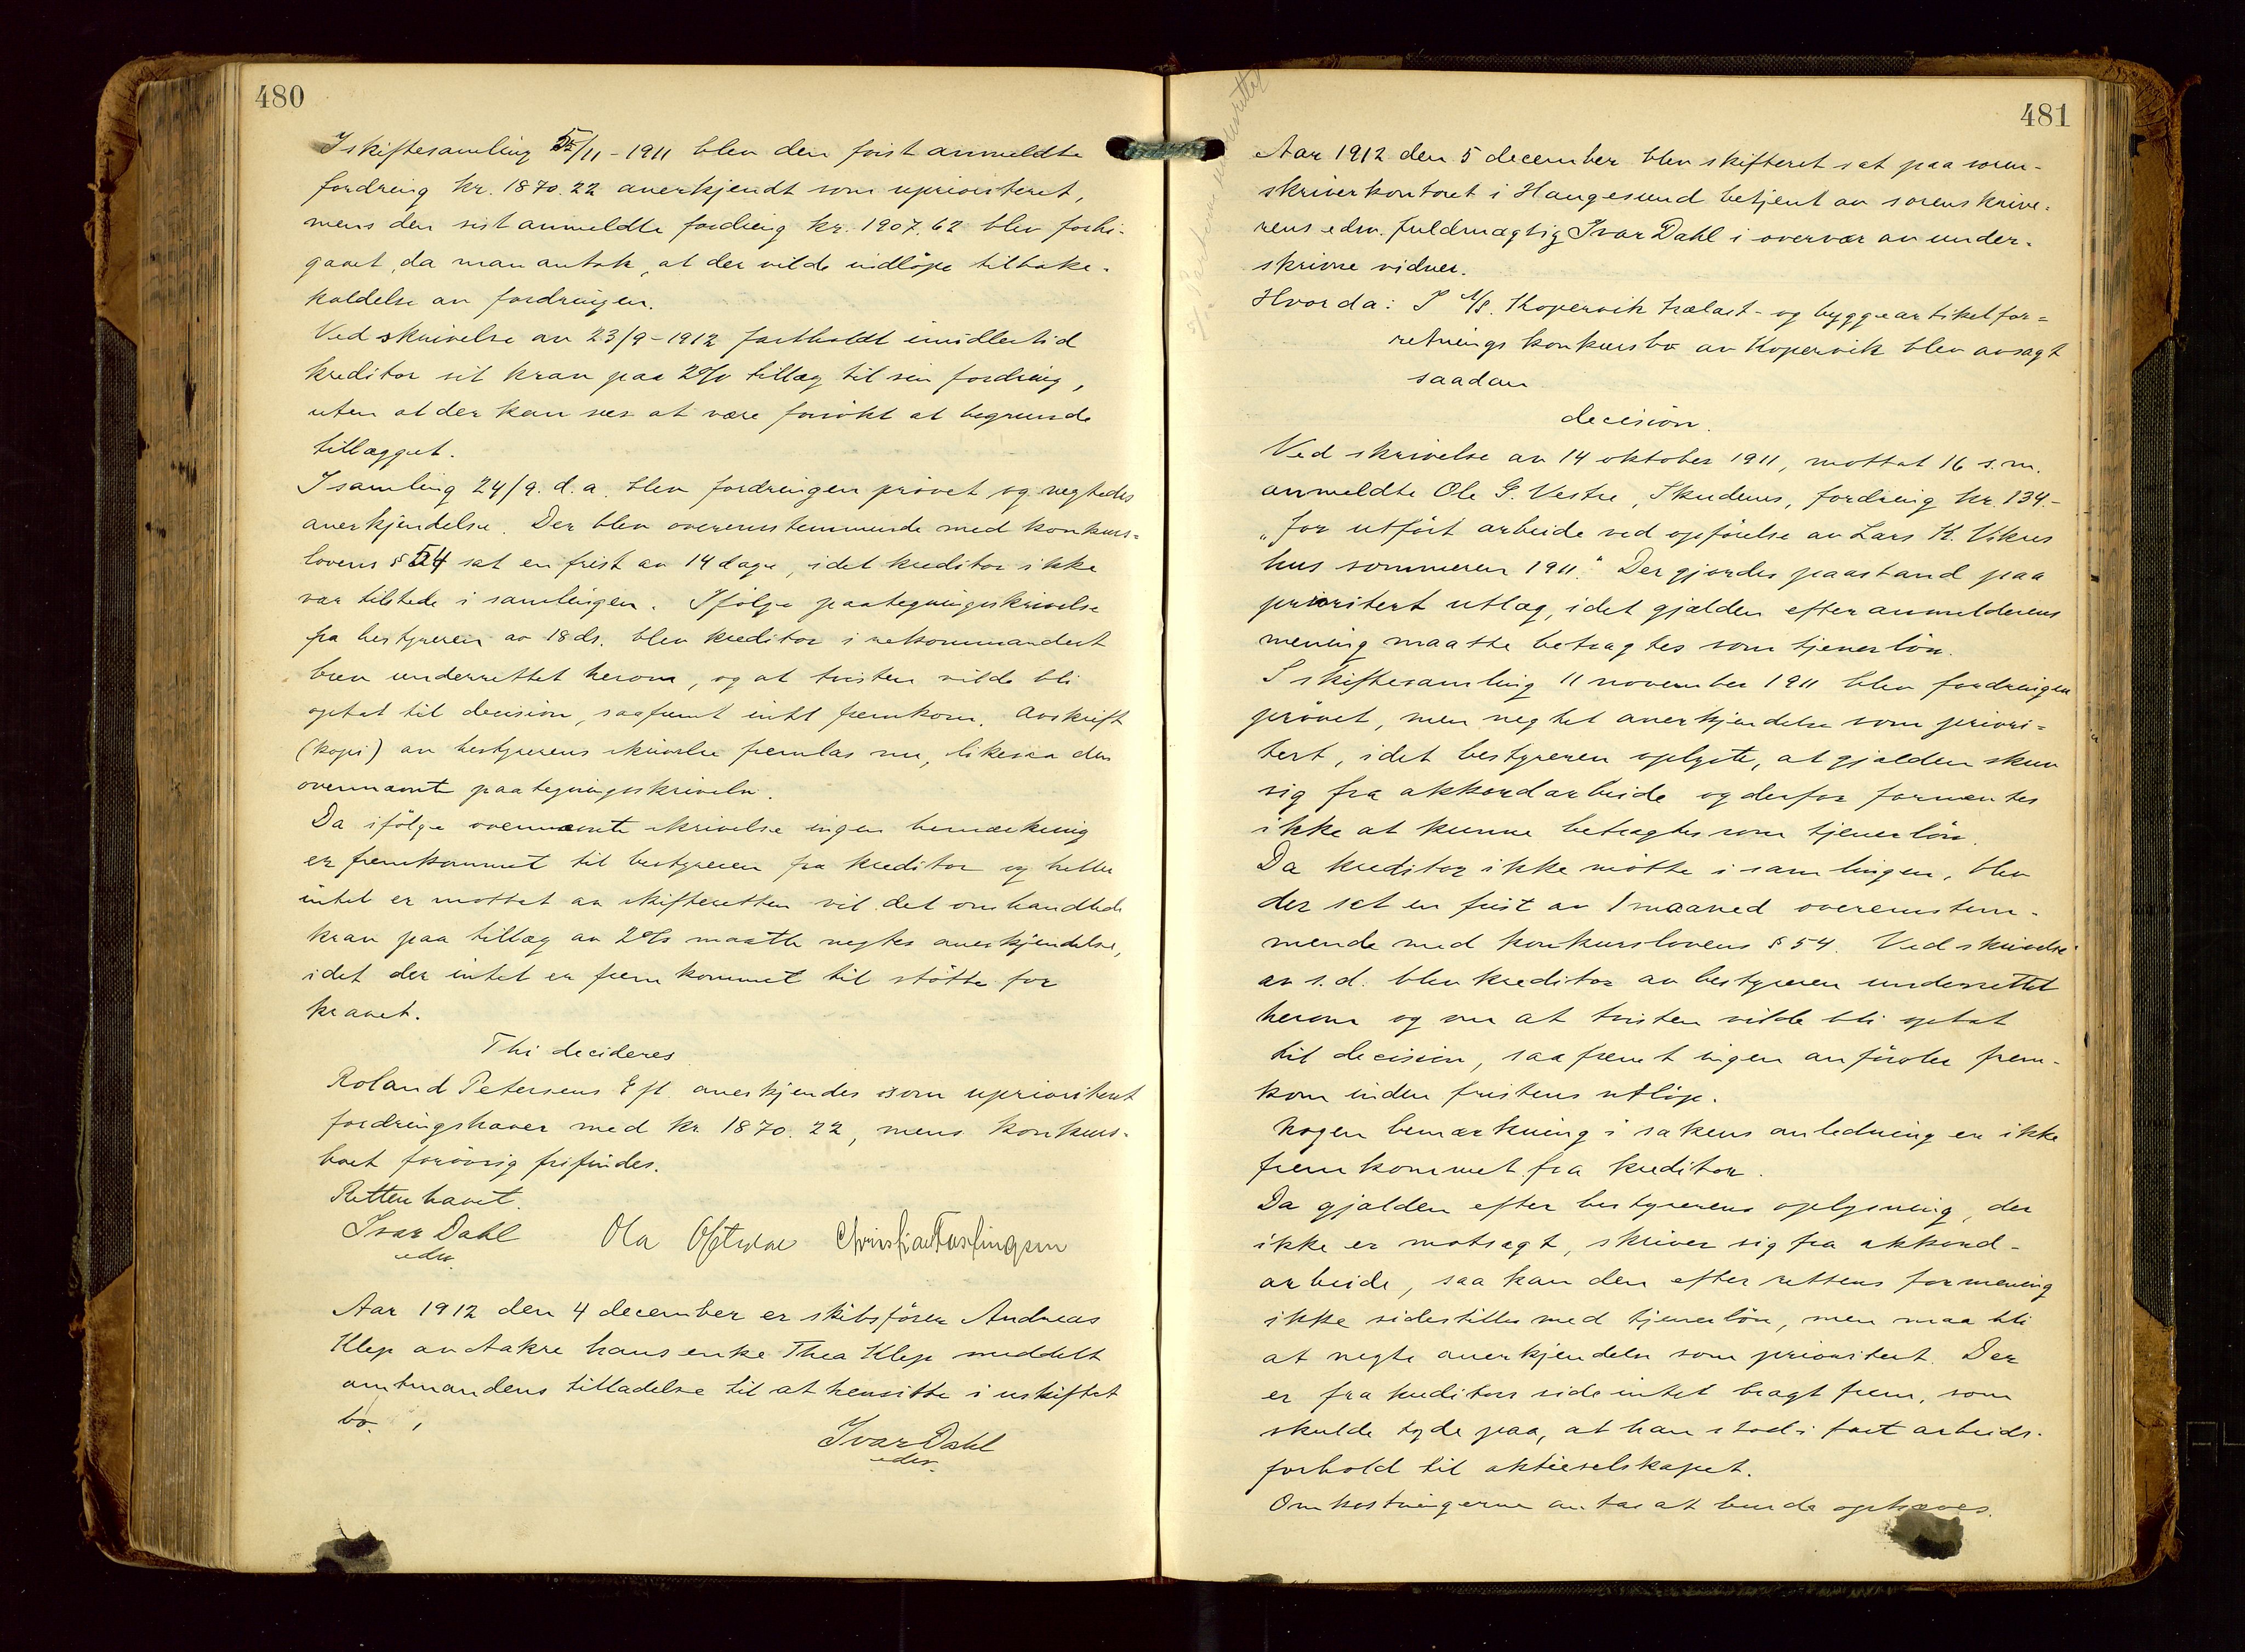 480
I skiftesamling /11-1911 blev den först anmeldte
fordring kr. 1870.22 anerkjendt som uprioriteret,
mens den sist anmeldte fordring kr. 1907.62 blev forbi-
gaaet, da man antok, at der vilde indløpe tilbake-
kaldelse av fordringen.
Ved skrivelse av 23/9-1912 fastholdt imidlertid
kreditor sit krav paa 2% tillæg til sin fordring,
uten at der kan sees at være forsökt at begrunde
tillægget.
I samling 24/9. d.a. blev fordringen prövet og negtedes
anerkjendelse. Der blev overensstemmende med konkurs-
lovens § 54 sat en frist av 14 dage, idet kreditor ikke
var tilstede i samlingen. Ifölge paategningsskrivelse
fra bestyreren av 18 ds. blev kreditor i rekommandert
brev underrettet herom, og at tvisten vilde bli
optat til decision, saafremt intet fremkom. Avskrift
(kopi) av bestyrerens skrivelse fremlas nu, likesaa den
ovennævnte paategningsskrivelse.
Da ifölge ovennævnte skrivelse ingen bemærkning
er fremkommet til bestyreren fra kreditor og heller
intet er mottat av skifteretten vil det omhandlede
krav paa tillæg av 2% maatte negtes anerkjendelse,
idet der intet er fremkommet til stötte for
kravet.
Thi decideres
Roland Petersens Eft. anerkjendes som uprioriteret
fordringshaver med kr 1870.22, mens konkurs-
boet forövrig frifindes.
Retten hævet.
Ivar Dahl
edsv.
Ola
Aar 1912 den 4 december er skibsförer Andreas
Klep av Aakre hans enke Thea Klep meddelt
amtmandens tilladelse til at hensitte i uskiftet
bo.
Ivar Dahl
edsv.
481
Aar 1912 den 5 december blev skifteret sat paa soren-
skriverkontoret i Haugesund betjent av sorenskrive-
rens edsv. fuldmægtig Ivar Dahl i overvær av under-
skrivne vidner.
Hvorda: I A/S. Kopervik trælast- og byggeartikelfor-
retnings konkursbo av Kopervik blev avsagt
saadan
decision.
Ved skrivelse av 14 oktober 1911, mottat 16 s.m.
anmeldte Ole G. Vestre, Skudenes, fordring kr. 134.-
"for utfört arbeide ved opförelse av Lars K. Vikres
hus sommeren 1911." Der gjordes paastand paa
prioritert utlæg, idet gjælden efter anmelderens
mening maatte betragtes som tjenerlön.
I skiftesamling 11 november 1911 blev fordringen
prövet, men negtet anerkjendelse som priori-
tert, idet bestyreren oplyste, at gjælden skrev
sig fra akkordarbeide og derfor formentes
ikke at kunne betragtes som tjenerlön.
Da kreditor ikke mötte i samlingen, blev
der sat en frist av 1 maaned overensstem-
mende med konkurslovens § 54. Ved skrivelse
av s.d. blev kreditor av bestyreren underrettet
herom og om at tvisten vilde bli optat
til decision, saafremt ingen anförsler frem-
kom inden fristens utlöp.
Nogen bemærkning i sakens anledning er ikke
fremkommet fra kreditor.
Da gjælden efter bestyrerens oplysning, der
ikke er motsagt, skriver sig fra akkord-
arbeide, saa kan den efter rettens formening
ikke sidestilles med tjenerlön, men maa bli
at negte anerkjendelse som prioritert. Der
er fra kreditors side intet bragt frem, som
skulde tyde paa, at han stod i fast arbeids-
forhold til aktieselskapet.
Omkostningerne antas at burde ophæves.